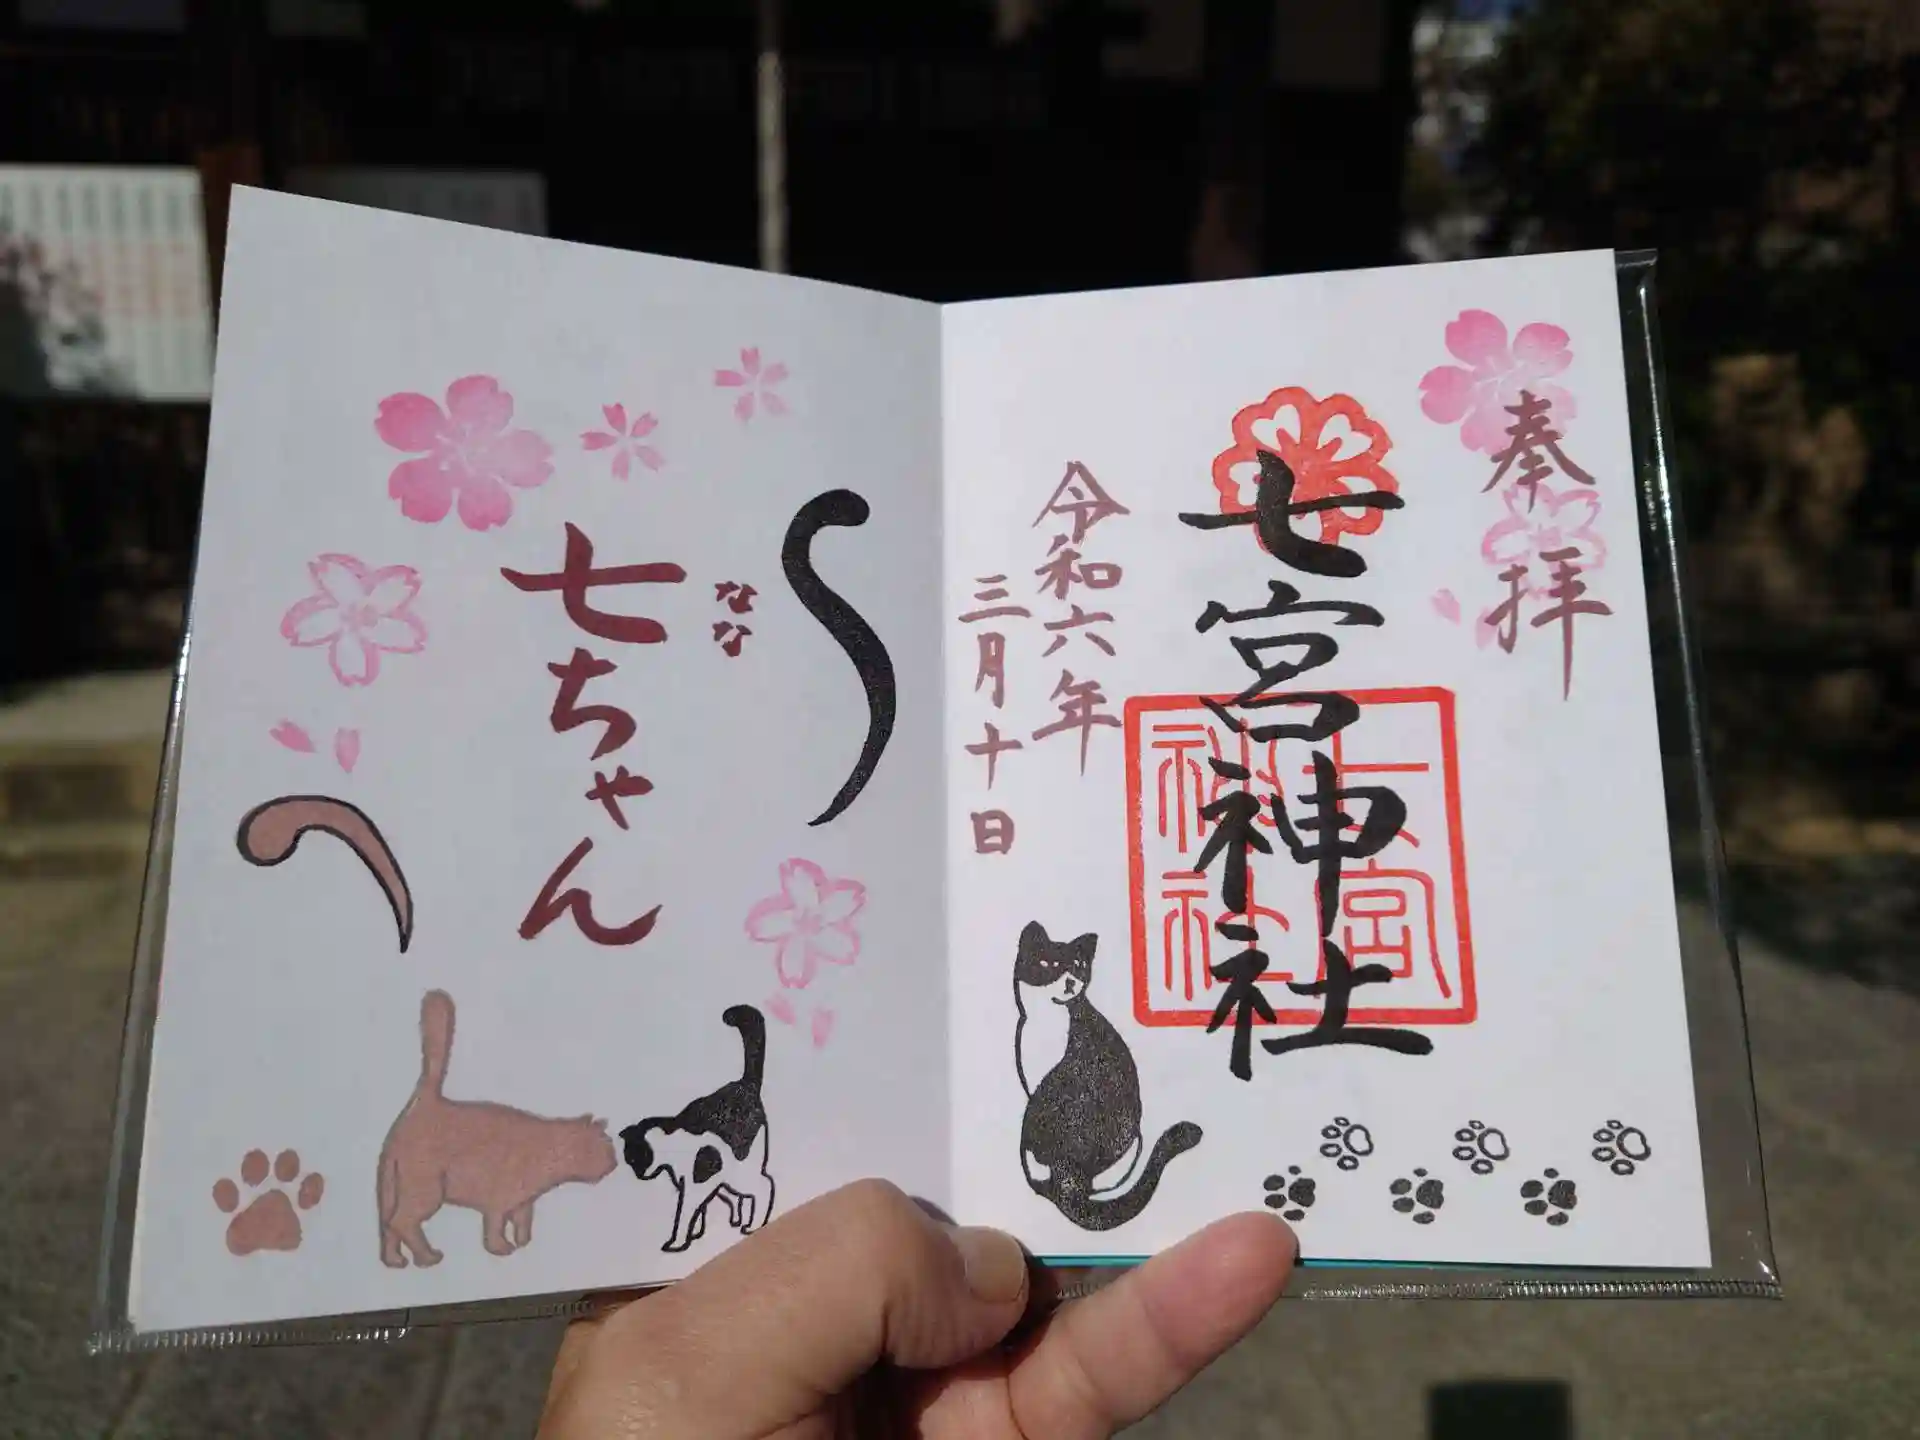 奉拝
七宮神社
七宮
神社
令和六年
三月十日
なな
七ちゃん